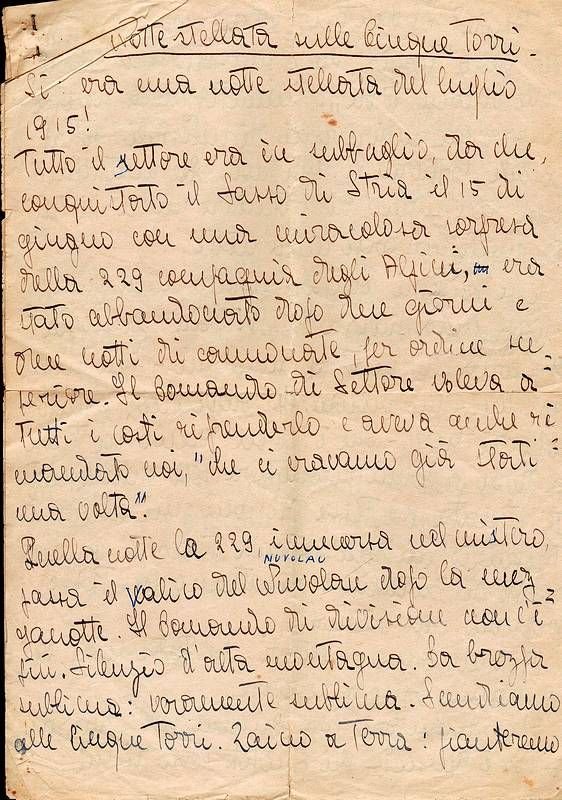 Notte stellata sulle Cinque Torri.
Si era una notte stellata del luglio
1915!
Tutto il settore era in subbuglio, da che,
conquistato il Sasso di Stria il 15 di
giugno con una miracolosa sorpresa
della 229 compagnia degli Alpini, era
stato abbandonato dopo due giorni e
due notti di cannonate, per ordine su-
periore. Il Comando di Settore voleva a
tutti i costi riprenderlo e aveva anche ri
mandato noi, "che ci eravamo già stati
una volta".
Quella notte la 229, immersa nel mistero,
NUVOLAU
passa il valico del Nuvolau dopo la mez
zanotte. Il Comando di divisione non c'è
più. Silenzio d'alta montagna. La brezza
sublima: veramente sublima. Scendiamo
alle Cinque Torri. Zaino a terra: pianteremo